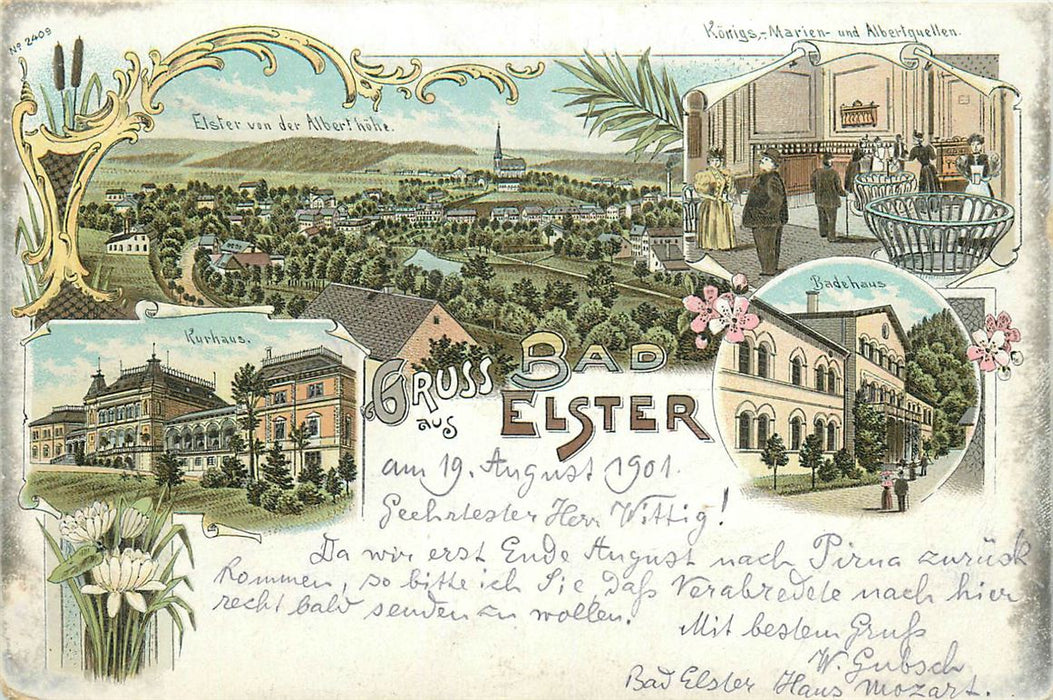 No 2409
Königs,- Marien- und Albertquellen.
Elster von der Alberthöhe.
Badehaus
Kurhaus.
GRUSS aus BAD ELSTER
am 19. August 1901.
Geehrtester Herr Wittig!
Da wir erst Ende August nach Pirna zurück
kommen, so bitte ich Sie, daß Verabredete nach hier
recht bald senden zu wollen.
Mit bestem Gruß
W. Gubsch
Bad Elster Haus Mozart.